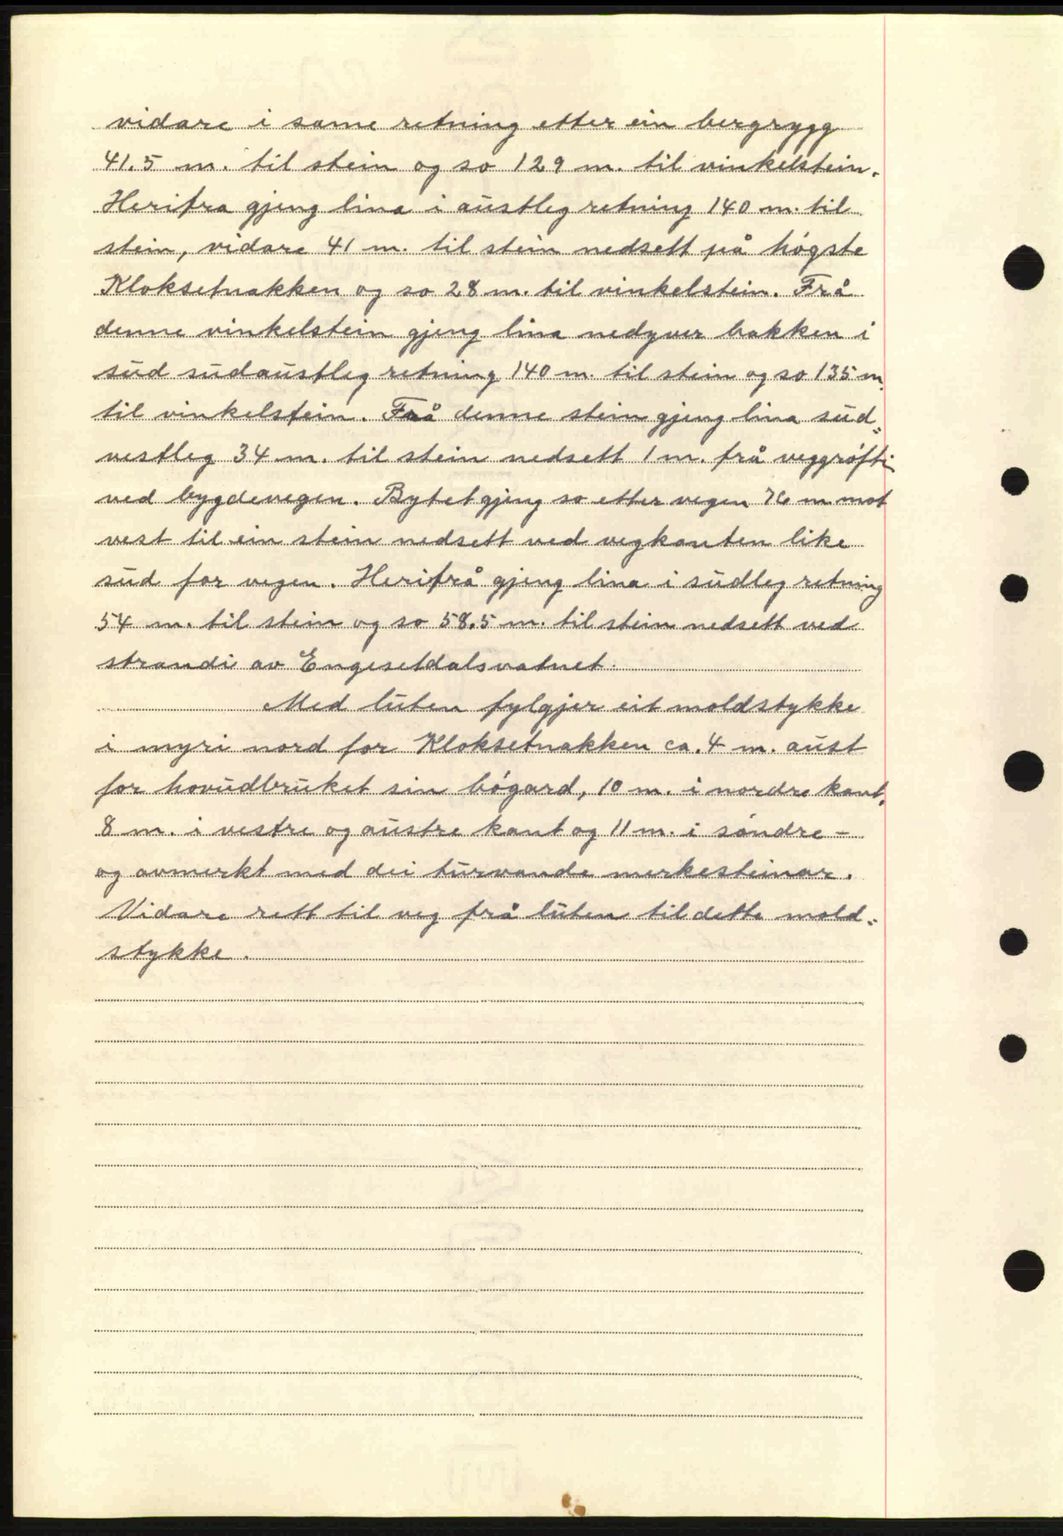 vidare i same retning etter ein bergrygg
41.5 m. til stein og so 129 m. til vinkelstein.
Herifra gjeng lina i austleg retning 140 m. til
stein, vidare 41 m. til stein nedsett på høgste
Kloksetnakken og so 28 m. til vinkelstein. Frå
denne vinkelstein gjeng lina nedyver bakken i
sud sudaustleg retning 140 m. til stein og so 135 m.
til vinkelstein. Frå denne stein gjeng lina sud=
vestleg 34 m. til stein nedsett 1 m. frå veggrøfti
ved bygdevegen. Bytet gjeng so etter vegen 76 m mot
vest til ein stein nedsett ved vegkanten like
sud for vegen. Herifrå gjeng lina i sudleg retning
54 m. til stein og so 58.5 m. til stein nedsett ved
strandi av Engesetdalsvatnet.
Med luten fylgjer eit moldstykke
i myri nord for Kloksetnakken ca. 4 m. aust
for hovudbruket sin bøgard, 10 m. i nordre kant,
8 m. i vestre og austre kant og 11 m. i søndre -
og avmerkt med dei turvande merkesteinar.
Vidare rett til veg frå luten til dette mold=
stykke.